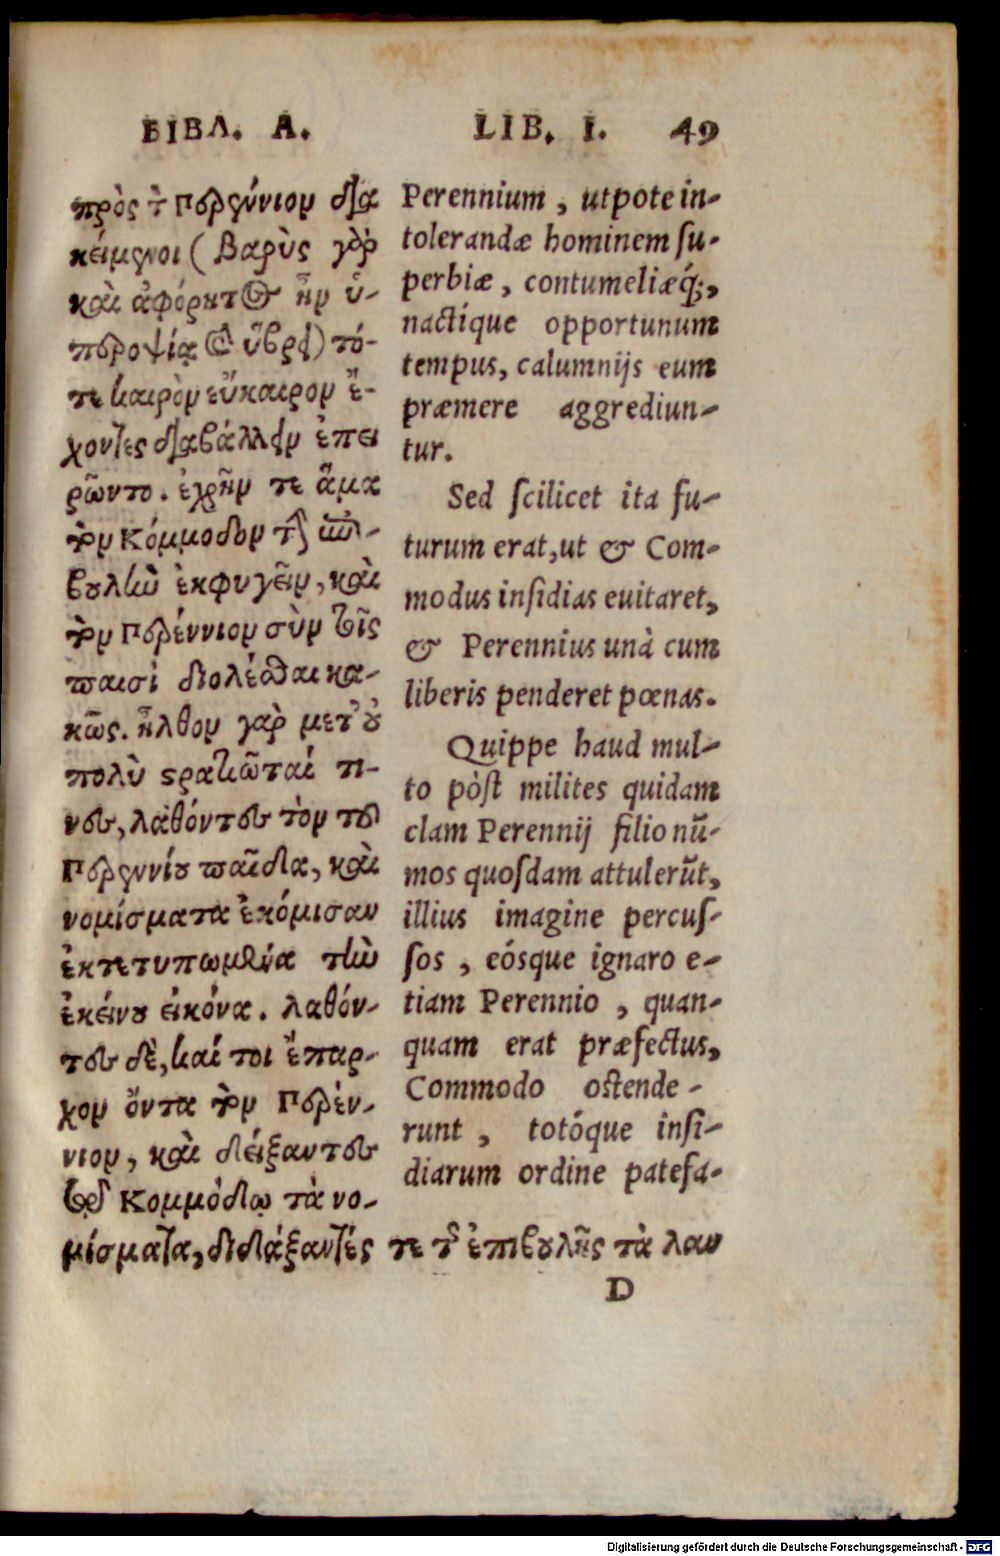 ΒΙΒΛ. Α.
πρὸς τ Περέννιον δια
κείμενοι (βαρὺς γὰρ
καὶ ἀφόρητος ἦν ὑ-
περοψίᾳ καὶ ὕβρει) τό-
τε καιρὸν εὔκαιρον ἔ-
χοντες διαβάλλειν ἐπει
ρῶντο. ἐχρῆν τε ἅμα
τὸν Κόμμοδον τὴν ἐπι-
βουλὴν ἐκφυγεῖν, καὶ
τὸν Περέννιον σὺν τοῖς
παισὶ διολέσθαι κα-
κῶς. ἦλθον γὰρ μετ' οὐ
πολὺ στρατιῶταί τι-
νες, λαθόντες τὸν τοῦ
Περεννίου παῖδα, καὶ
νομίσματα ἐκόμισαν
ἐκτετυπωμένα τὴν
ἐκείνου εἰκόνα. λαθόν-
τες δὲ, καί τοι ἔπαρ-
χον ὄντα τὸν Περέν-
νιον, καὶ δείξαντες
τῷ Κομμόδῳ τὰ νο-
μίσματα, διδάξαντές τε τῆς ἐπιβουλῆς τὰ λαν
LIB. I. 49
Perennium, utpote in-
tolerandæ hominem su-
perbiæ, contumeliæq́;,
nactique opportunum
tempus, calumnijs eum
præmere aggrediun-
tur.
Sed scilicet ita fu-
turum erat, ut & Com-
modus insidias euitaret,
& Perennius unà cum
liberis penderet pœnas.
Quippe haud mul-
to pòst milites quidam
clam Perennij filio nũ-
mos quosdam attulerũt,
illius imagine percus-
sos, eósque ignaro e-
tiam Perennio, quan-
quam erat præfectus,
Commodo ostende-
runt, totóque insi-
diarum ordine patefa-
D
Digitalisierung gefördert durch die Deutsche Forschungsgemeinschaft - DFG